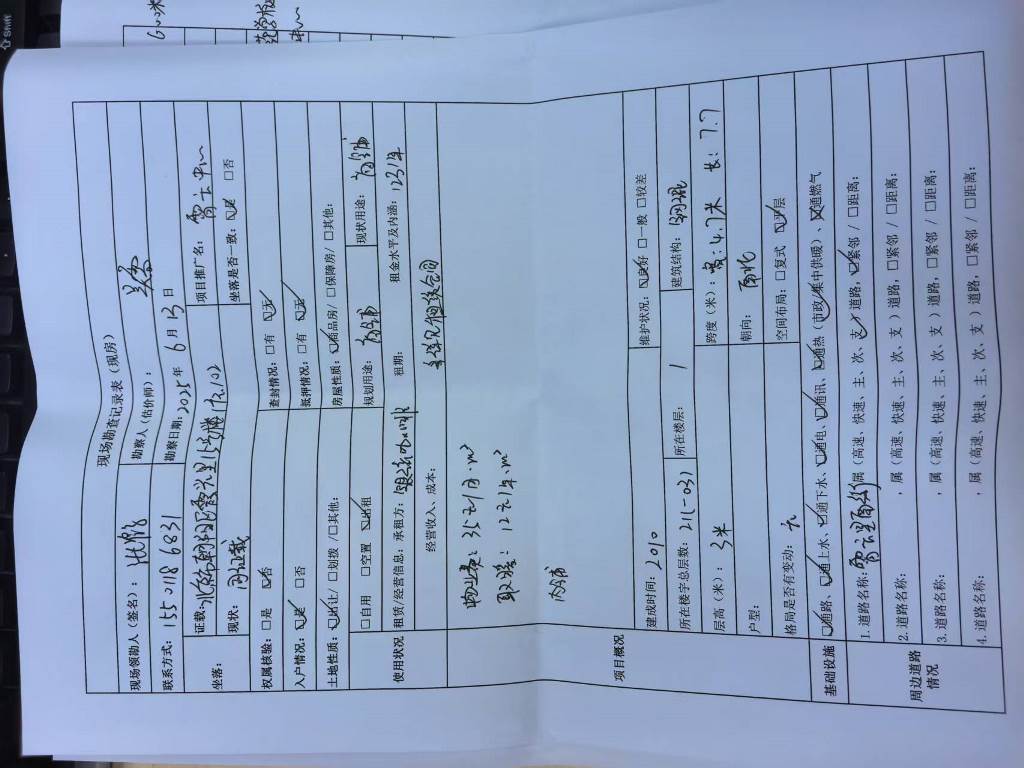 现场勘查记录表（现房）
现场领勘人（签名）： 勘察人（估价师）：
联系方式：155 0118 6831 勘察日期：2025年 6月 13日
坐落： 证载：北京市朝阳区霄云里1号楼1层102 项目推广名：
现状：同证载 坐落是否一致：☑是 □否
权属核验：□是 ☑否 查封情况：□有 ☑无
入户情况：☑是 □否 抵押情况：□有 ☑无
土地性质：☑出让/ □划拨 /□其他： 房屋性质：☑商品房/ □保障房/ □其他：
使用状况 □自用 □空置 ☑出租 规划用途：商铺 现状用途：商铺
租赁/经营信息：承租方： 租期： 租金水平及内涵：
经营收入、成本： 详见租赁合同
物业费：35元/月·m²
取暖：12元/年·m²
内铺
项目概况
建成时间：2010 维护状况：☑良好 □一般 □较差
所在楼宇总层数：21(-03) 所在楼层：1 建筑结构：
层高（米）：3米 跨度（米）：宽：4.7米 长：7.7
户型： 朝向：南北
格局是否有变动：无 空间布局：□复式 ☑平层
基础设施 ☑通路、☑通上水、☑通下水、☑通电、☑通讯、☑通热（市政/集中供暖）、☑通燃气
周边道路情况 1.道路名称： ，属（高速、快速、主、次、支）道路，☑紧邻 / □距离：
2.道路名称： ，属（高速、快速、主、次、支）道路，□紧邻 / □距离：
3.道路名称： ，属（高速、快速、主、次、支）道路，□紧邻 / □距离：
4.道路名称： ，属（高速、快速、主、次、支）道路，□紧邻 / □距离：